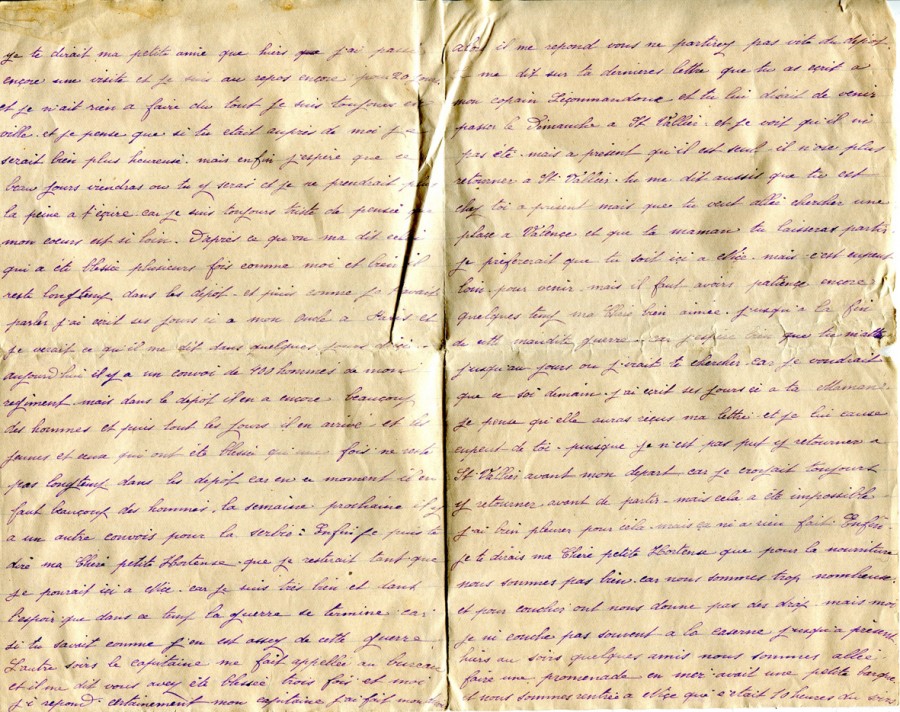 Je te dirait ma petite amie que hiers que j'ai passé
encore une visite et je suis au repos encore pour 20 jours
et je n'ait rien a faire du tout je suis toujours en
ville. et je pense que si tu etait auprès de moi je
serait bien plus heureuse. mais enfin j'espère que ce
beau jours viendras ou tu y seras et je ne prendrait plus
la peine a t'ecrire car je suis toujours triste de pensée que
mon coeurs est si loin. D'après ce qu'on ma dit celui
qui a été blessée plusieurs fois comme moi et bien il
reste longtemp dans les depot. et puis comme je t'avait
parler j'ai ecrit ses jours ci a mon oncle a Paris et
je verait ce qu'il me dit dans quelques jours d'ici.
aujourd'hui il y a un convoi de 400 hommes de mon
regiment mais dans le depot il en a encore beaucoup
des hommes et puis tout les jours il en arrive et les
jeunes et ceux qui ont été blessée qu'une fois ne reste
pas longtemp dans les depot car en ce moment il en
faut beaucoup des hommes. la semaine prochaine il y
a un autre convois pour la serbie. Enfin je puis te
dire ma Chère petite Hortense que je resterait tant que
je pourait ici a Nice. car je suis très bien et dans
l'espoir que dans ce temp la guerre se termine car
si tu savait comme j'en est assez de cette guerre
L'autre soirs le capitaine me fait appellée au bureau
et il me dit vous avez été blessée trois fois et moi
je repond. certainement mon capitaine j'ai fait mon
alors il me repond vous ne partirez pas vite du depot.
me dit sur ta dernieres lettre que tu as ecrit a
mon copain et tu lui disait de venir
passer le Dimanche a St Vallier. et je voit qu'il ni
pas été. mais a present qu'il est seul il n'ose plus
retourner a St Vallier. tu me dit aussis que tu est
chez toi a present mais que tu veut allée chercher une
place a Valence et que ta maman tu laisseras partir
je prefererait que tu soit ici a Nice. mais c'est unpeut
loin pour venir mais il faut avoirs patience encore
quelques temp ma Chère bien aimée. jusqu'a la fin
de cette maudite guerre. car j'espère bien que tu m'att
jusqu'au jours ou j'irait te chercher car je voudrait
que ce soi demain. j'ai ecrit ses jours ci a ta Maman
je pense qu'elle auras reçus ma lettre. et je lui cause
unpeut de toi. puisque je n'est pas put y retourner a
St Vallier avant mon depart car je croyait toujours
y retourner avant de partir. mais cela a été impossible
j'ai bien pleurer pour cela mais ça ni a rien fait. Enfin
je te dirais ma Chère petite Hortense que pour la nourriture
nous sommes pas bien. car nous sommes trop nombreux
et pour coucher ont nous donne pas des drap mais moi
je ni couche pas souvent a la caserne jusqu'a present
hiers au soirs quelques amis nous sommes allée
faire une promenade en mer avait une petite barque
et nous sommes rentrée a Nice qu'i s'etait 10 heures du soirs